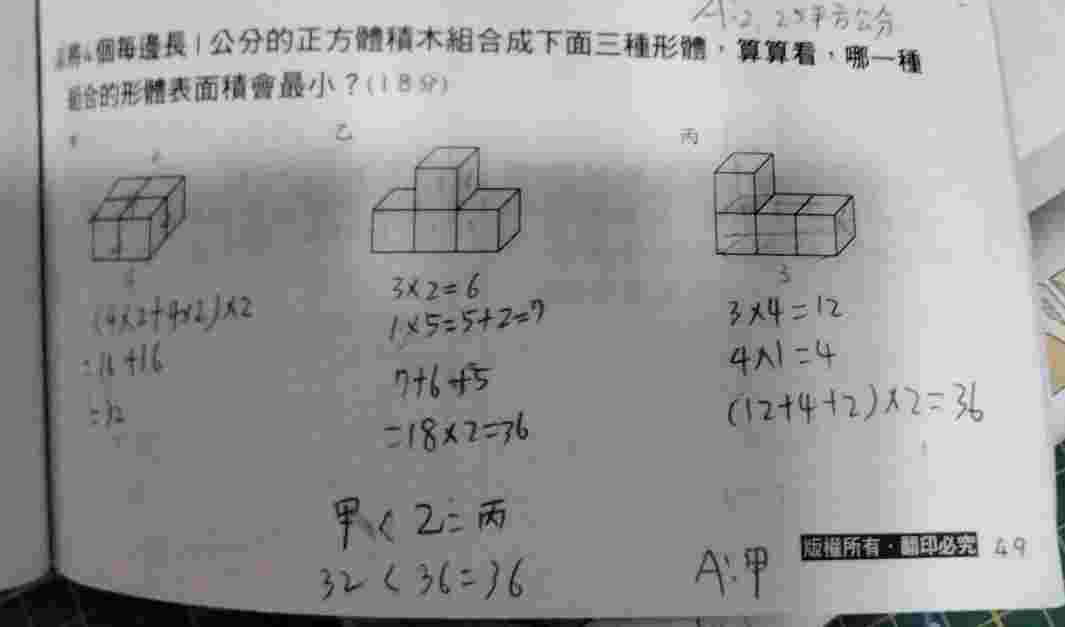 A:2.25平方公分
將4個每邊長1公分的正方體積木組合成下面三種形體,算算看,哪一種
組合的形體表面積會最小?(18分)
乙 丙
3
(4×2+4×2)×2
=16+16
=32
3×2=6
1×5=5+2=7
7+6+5
=18×2=36
3×4=12
4×1=4
(12+4+2)×2=36
甲<乙=丙
32<36=36
A:甲
版權所有·翻印必究 49